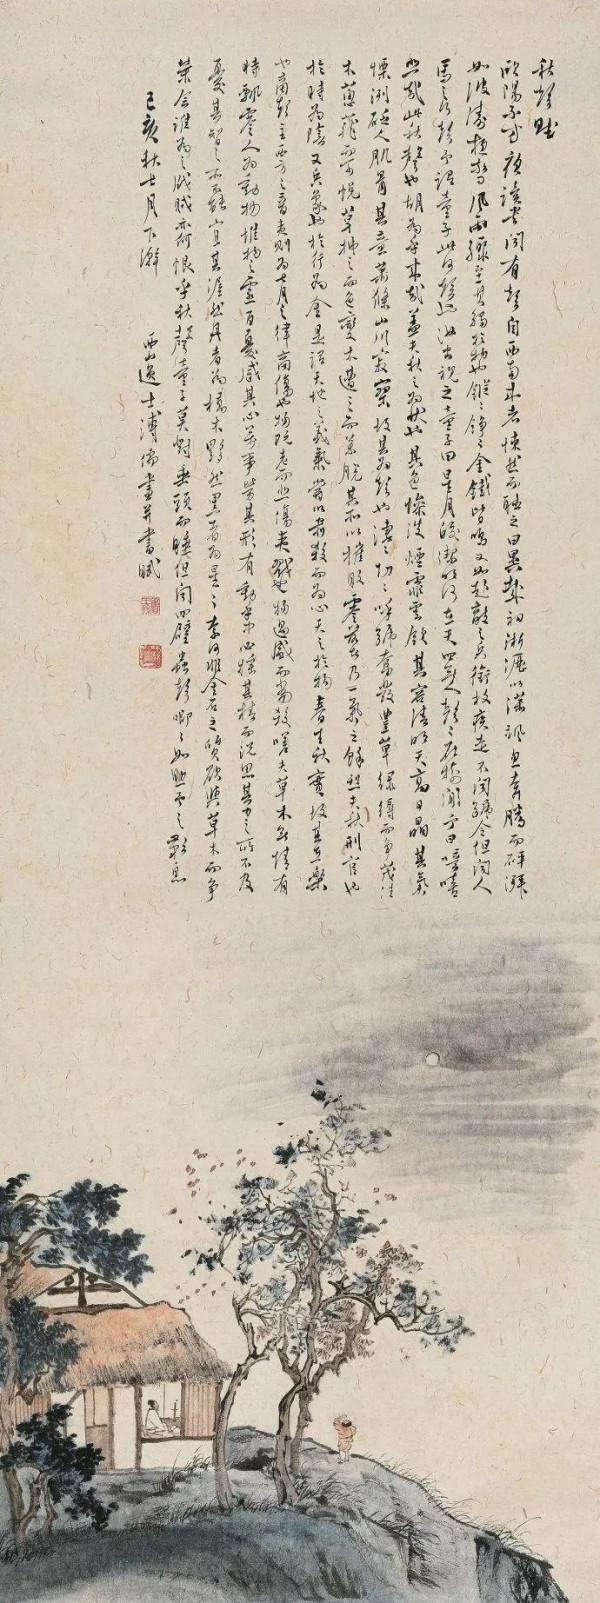 秋聲賦
歐陽子方夜讀書聞有聲自西南來者悚然而聽之曰異哉初淅瀝以瀟颯忽奔騰而砰湃
如波濤夜驚風雨驟至其觸於物也鏦〻錚〻金鐵皆鳴又如赴敵之兵銜枚疾走不聞號令但聞人
馬之行聲予謂童子此何聲也汝出視之童子曰星月皎潔明河在天四無人聲〻在樹間予曰噫嘻
悲哉此秋聲也胡為乎來哉蓋夫秋之為狀也其色慘淡煙霏雲斂其容清明天高日晶其氣
慄冽砭人肌骨其意蕭條山川寂寥故其為聲也淒〻切〻呼號奮發豐草綠縟而爭茂佳
木蔥蘢而可悅草拂之而色變木遭之而葉脫其所以摧敗零落者乃一氣之餘烈夫秋刑官也
於時為陰又兵象也於行為金是謂天地之義氣常以肅殺而為心天之於物春生秋實故其在樂
也商聲主西方之音夷則為七月之律商傷也物既老而悲傷夷戮也物過盛而當殺嗟夫草木無情有
時飄零人為動物惟物之靈百憂感其心萬事勞其形有動乎中必搖其精而況思其力之所不及
憂其智之所不能宜其渥然丹者為槁木黟然黑者為星〻奈何非金石之質欲與草木而爭
榮念誰為之戕賊亦何恨乎秋聲童子莫對垂頭而睡但聞四壁蟲聲唧〻如助予之歎息
己亥秋七月下澣
西山逸士溥儒畫并書賦